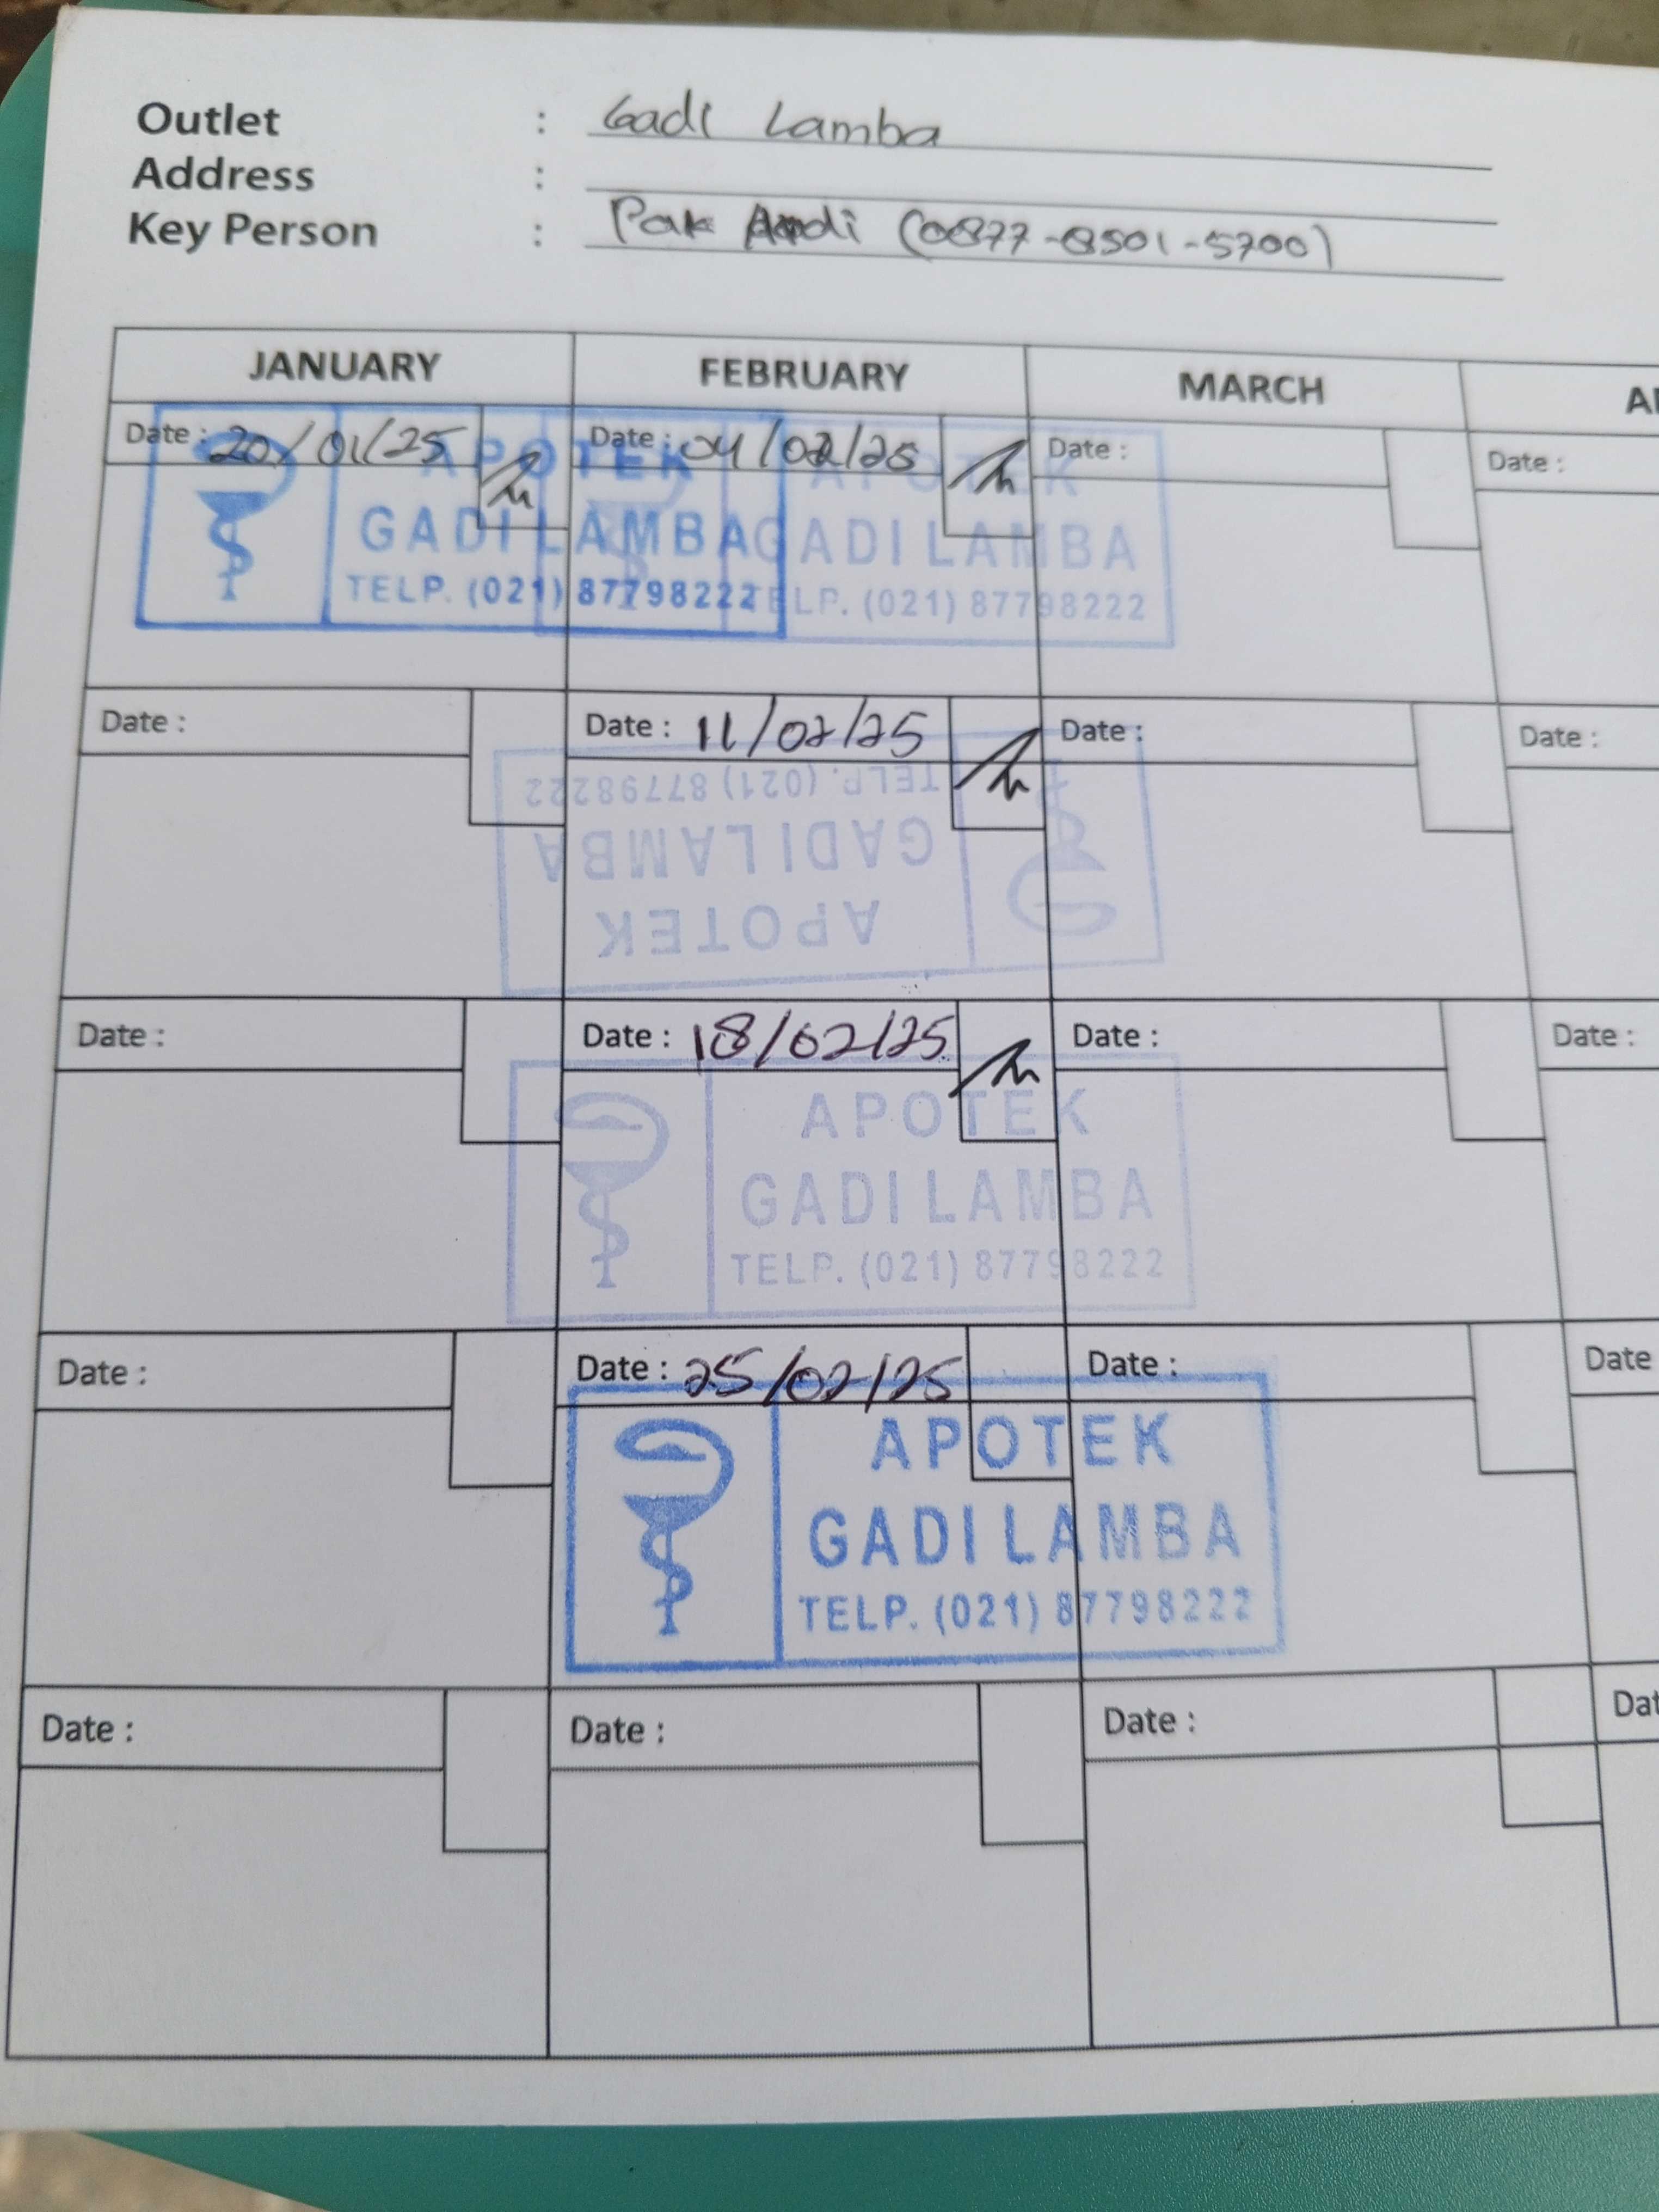 Outlet : Gadi Lamba
Address :
Key Person : Pak Andi (0877-8501-5700)
JANUARY FEBRUARY MARCH
Date : 20/01/25 Date : 04/02/25 Date : Date :
APOTEK
GADI LAMBA
TELP. (021) 87798222
APOTEK
GADI LAMBA
TELP. (021) 87798222
Date : Date : 11/02/25 Date : Date :
APOTEK
GADI LAMBA
TELP. (021) 87798222
Date : Date : 18/02/25 Date : Date :
APOTEK
GADI LAMBA
TELP. (021) 87798222
Date : Date : 25/02/25 Date : Date
APOTEK
GADI LAMBA
TELP. (021) 87798222
Date : Date : Date : Dat